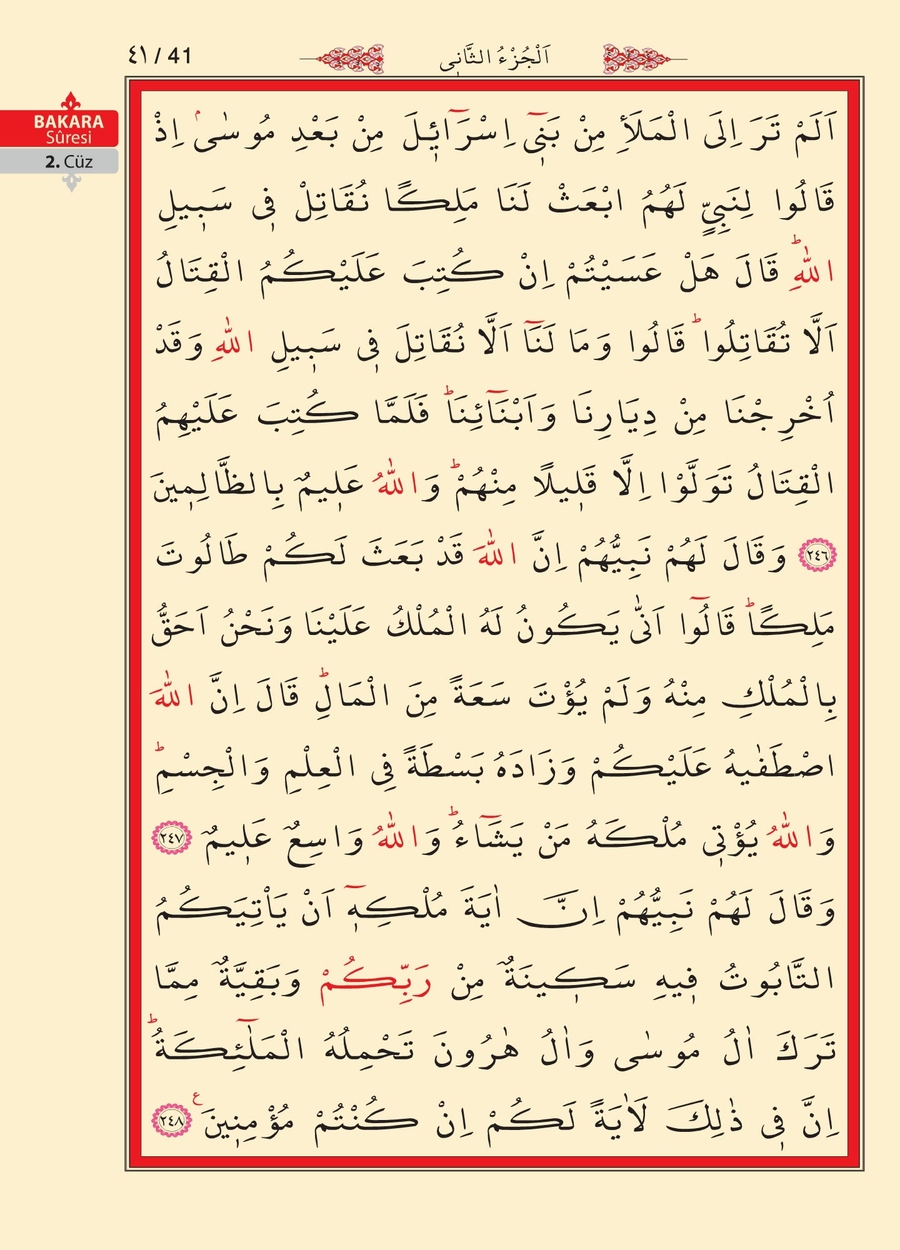 ٤١ / 41
اَلْجُزْءُ الثَّانٖى
BAKARA
Sûresi
2. Cüz
اَلَمْ تَرَ اِلَى الْمَلَأِ مِنْ بَنٖٓى اِسْرَٓائٖلَ مِنْ بَعْدِ مُوسٰىۢ اِذْ
قَالُوا لِنَبِيٍّ لَهُمُ ابْعَثْ لَنَا مَلِكًا نُقَاتِلْ فٖى سَبٖيلِ
اللّٰهِؕ قَالَ هَلْ عَسَيْتُمْ اِنْ كُتِبَ عَلَيْكُمُ الْقِتَالُ
اَلَّا تُقَاتِلُواؕ قَالُوا وَمَا لَنَٓا اَلَّا نُقَاتِلَ فٖى سَبٖيلِ اللّٰهِ وَقَدْ
اُخْرِجْنَا مِنْ دِيَارِنَا وَاَبْنَٓائِنَاؕ فَلَمَّا كُتِبَ عَلَيْهِمُ
الْقِتَالُ تَوَلَّوْا اِلَّا قَلٖيلًا مِنْهُمْؕ وَاللّٰهُ عَلٖيمٌ بِالظَّالِمٖينَ
﴿٢٤٦﴾ وَقَالَ لَهُمْ نَبِيُّهُمْ اِنَّ اللّٰهَ قَدْ بَعَثَ لَكُمْ طَالُوتَ
مَلِكًاؕ قَالُٓوا اَنّٰى يَكُونُ لَهُ الْمُلْكُ عَلَيْنَا وَنَحْنُ اَحَقُّ
بِالْمُلْكِ مِنْهُ وَلَمْ يُؤْتَ سَعَةً مِنَ الْمَالِؕ قَالَ اِنَّ اللّٰهَ
اصْطَفٰيهُ عَلَيْكُمْ وَزَادَهُ بَسْطَةً فِى الْعِلْمِ وَالْجِسْمِؕ
وَاللّٰهُ يُؤْتٖى مُلْكَهُ مَنْ يَشَٓاءُؕ وَاللّٰهُ وَاسِعٌ عَلٖيمٌ ﴿٢٤٧﴾
وَقَالَ لَهُمْ نَبِيُّهُمْ اِنَّ اٰيَةَ مُلْكِهٖٓ اَنْ يَاْتِيَكُمُ
التَّابُوتُ فٖيهِ سَكٖينَةٌ مِنْ رَبِّكُمْ وَبَقِيَّةٌ مِمَّا
تَرَكَ اٰلُ مُوسٰى وَاٰلُ هٰرُونَ تَحْمِلُهُ الْمَلٰٓئِكَةُؕ
اِنَّ فٖى ذٰلِكَ لَاٰيَةً لَكُمْ اِنْ كُنْتُمْ مُؤْمِنٖينَ ع ﴿٢٤٨﴾